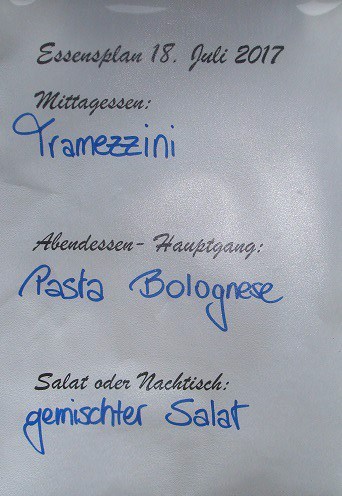 Essensplan 18. Juli 2017
Mittagessen:
Tramezzini
Abendessen- Hauptgang:
Pasta Bolognese
Salat oder Nachtisch:
gemischter Salat